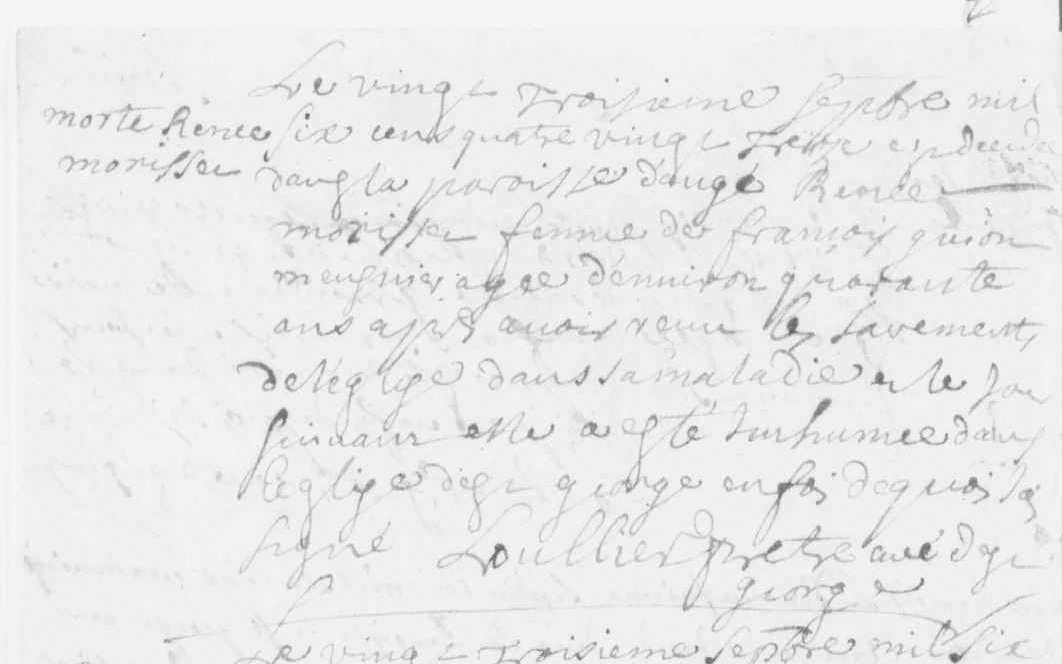 Le vingt troisieme sepbre mil
morte Renee
morisset
six cens quatre vingt treize est decedee
dans la paroisse daugé Renee
morisset femme de francois guion
meugnier agee denuiron quarante
ans apres auoir receu les sacements
de leglise dans sa maladie et le jou
suiuant elle a esté Inhumee dans
leglise de st george en foi de quoi Jai
signé Loullier pretre curé de st
george
Le vingt troisieme sepbre mil six